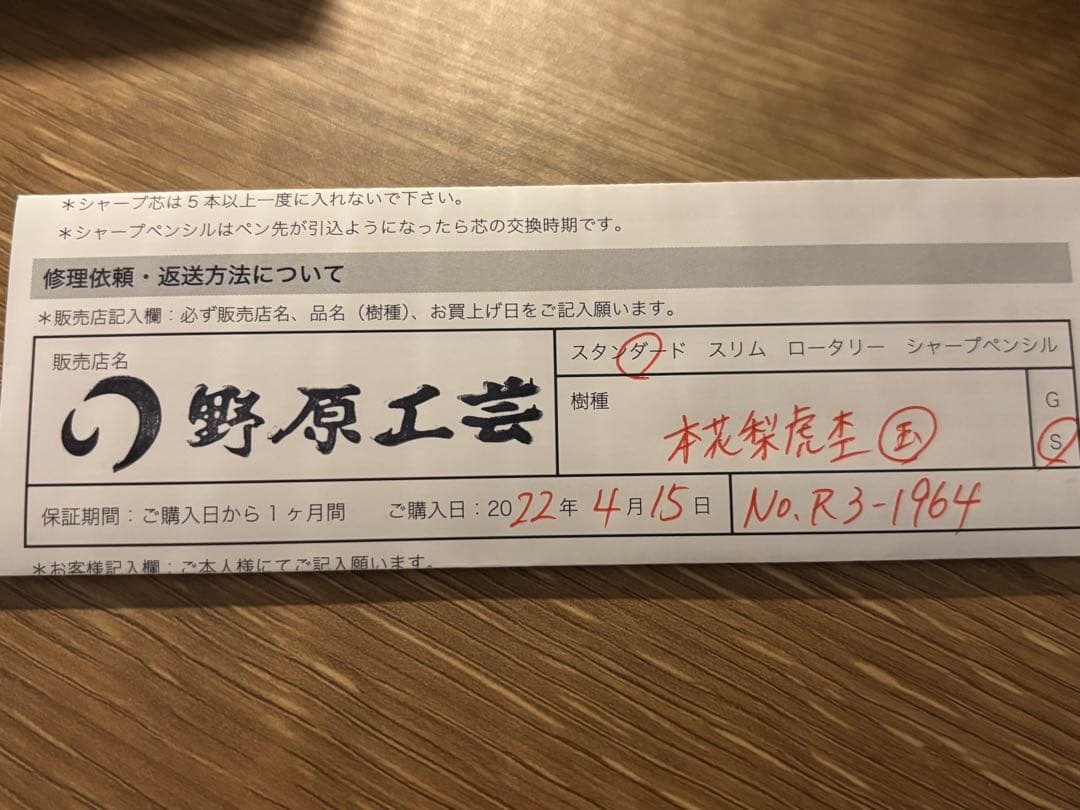 ＊シャープ芯は5本以上一度に入れないで下さい。
＊シャープペンシルはペン先が引込ようになったら芯の交換時期です。
修理依頼・返送方法について
＊販売店記入欄：必ず販売店名、品名（樹種）、お買上げ日をご記入願います。
販売店名
野原工芸
スタンダード　スリム　ロータリー　シャープペンシル
樹種
本花梨虎杢 玉
G
S
保証期間：ご購入日から1ヶ月間　ご購入日：2022年4月15日
No.R3-1964
＊お客様記入欄：ご本人様にてご記入願います。